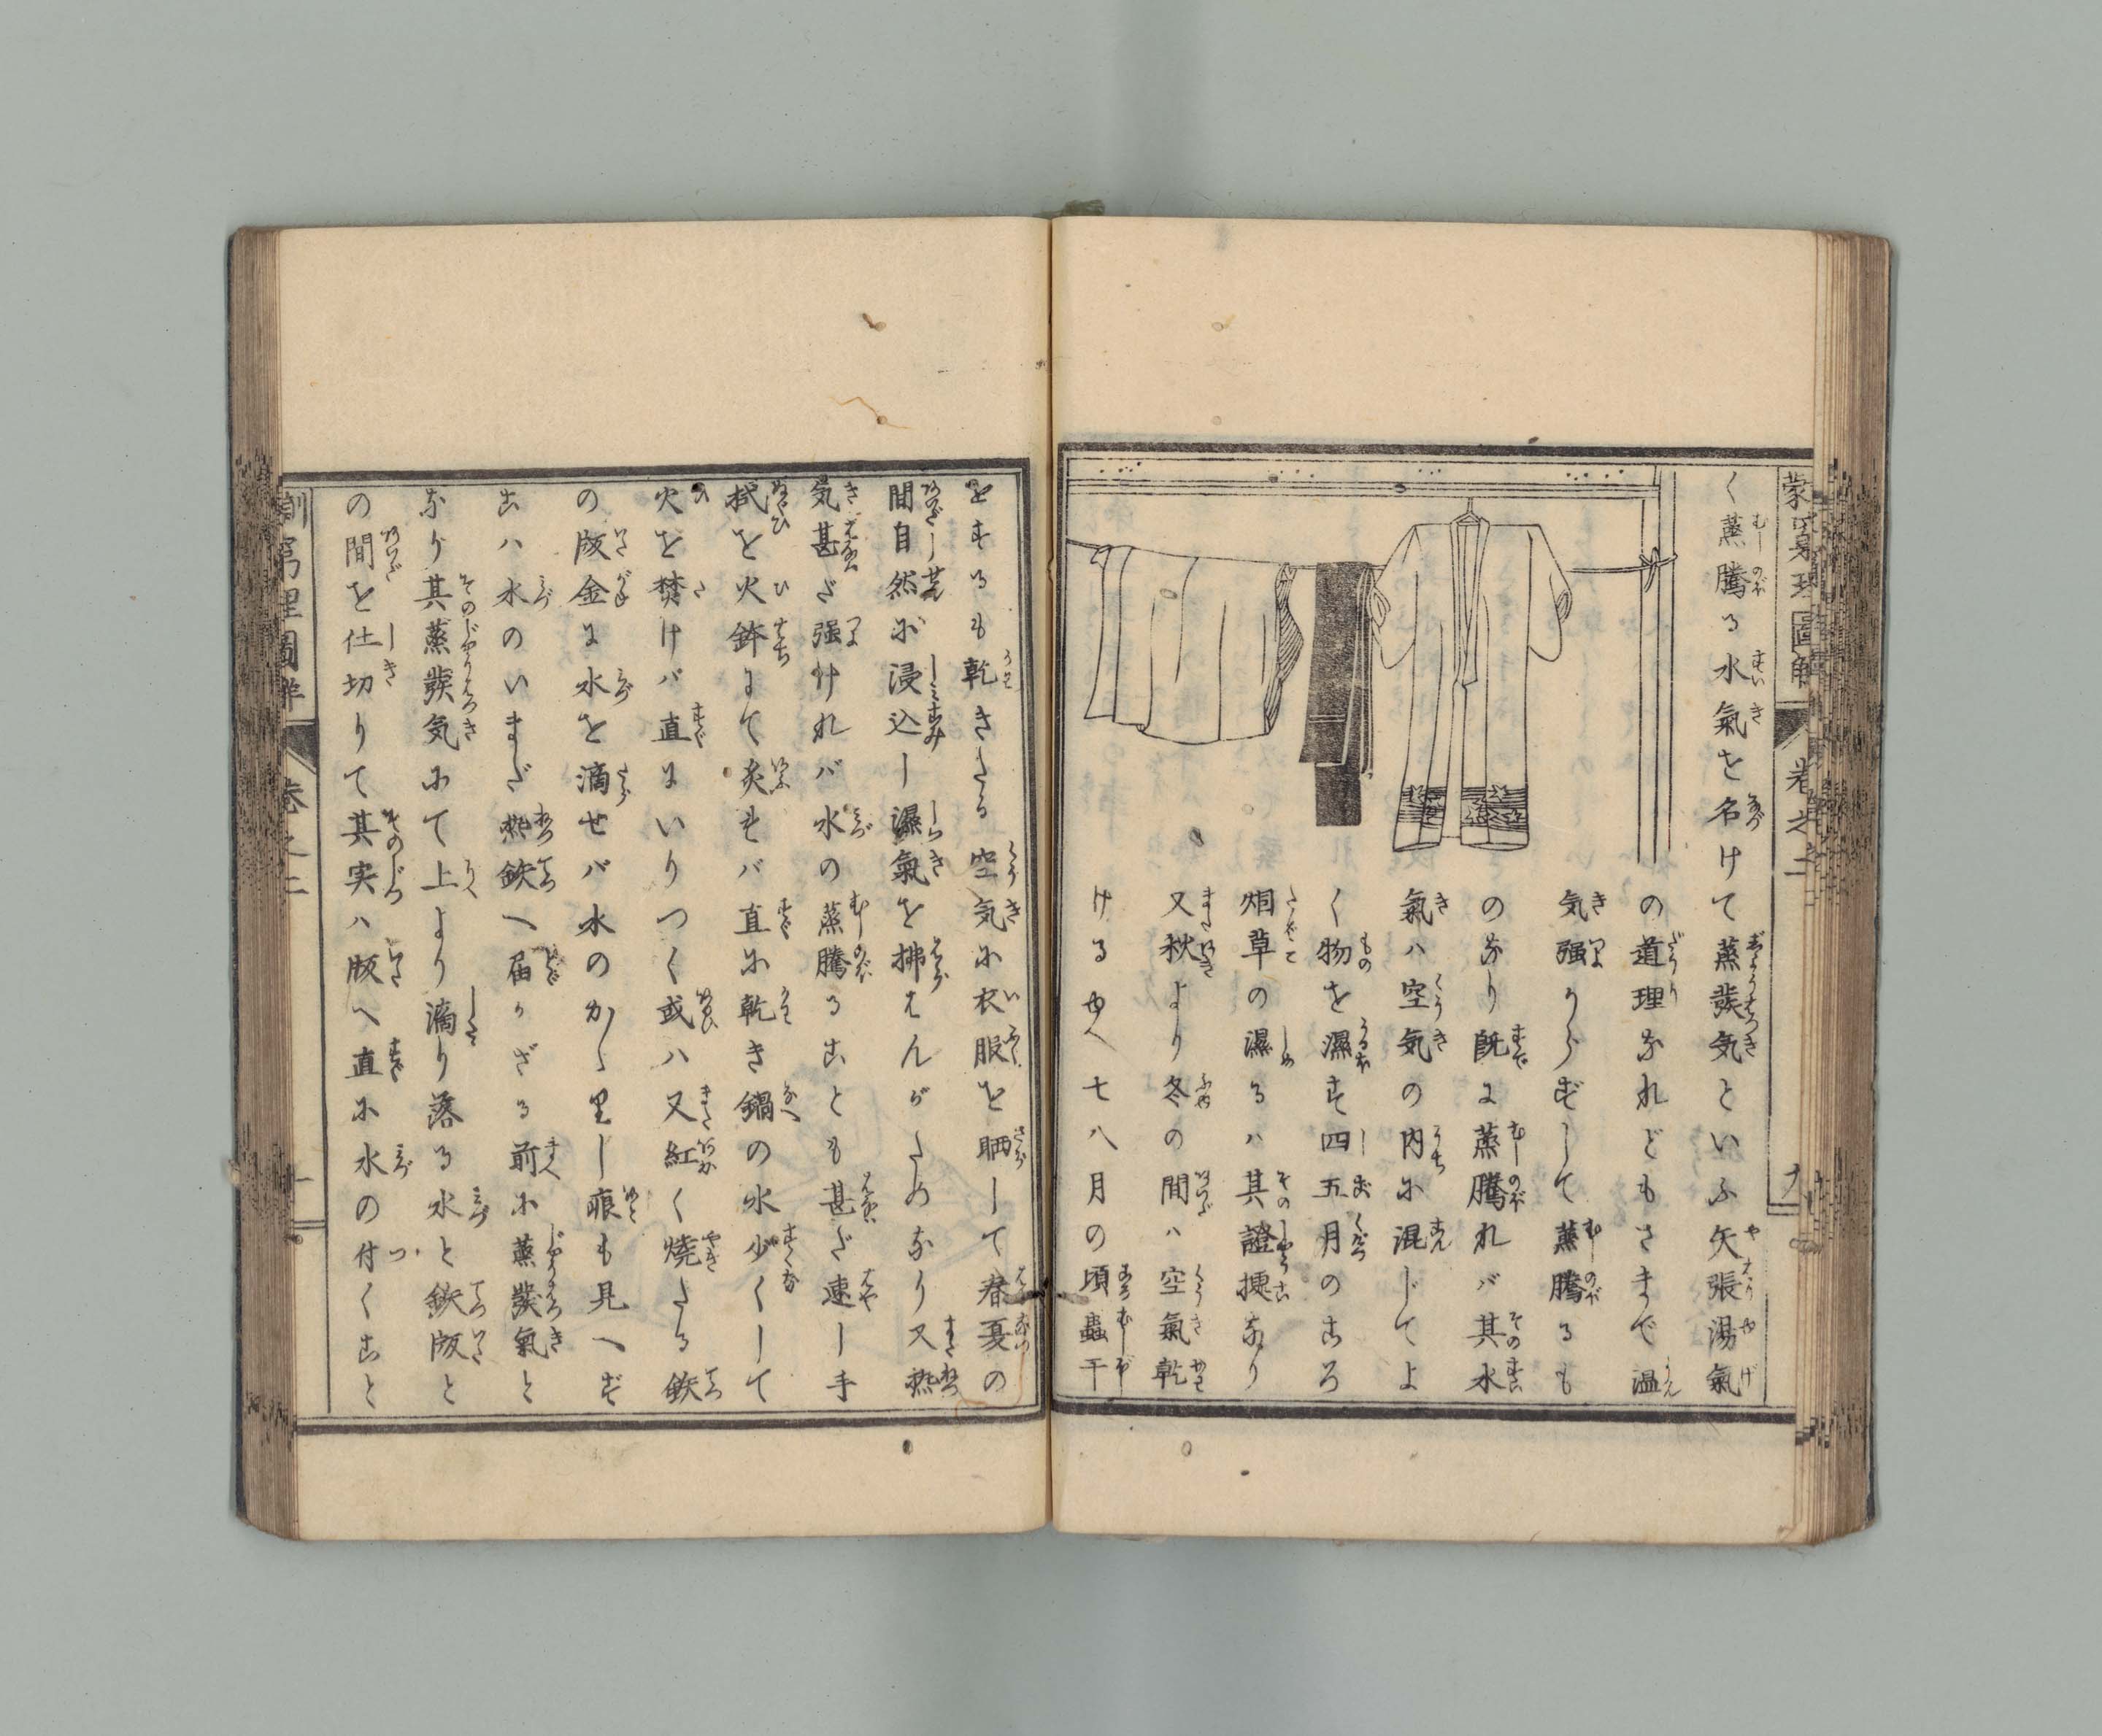 く蒸騰る水氣を名けて蒸發気といふ矢張湯氣
の道理なれどもさまで温
気強からずして蒸騰るも
のなり既に蒸騰れバ其水
氣ハ空気の内に混じてよ
く物を濕す四五月のころ
烟草の濕るハ其證據なり
又秋より冬の間ハ空氣乾
ける由へ七八月の頃蟲干
をするも乾きたる空気に衣服を晒して春夏の
間自然に浸込し濕氣を拂はんがためなり又熱
気甚だ强けれバ水の蒸騰ることも甚だ速し手
拭を火鉢にて炙れバ直に乾き鍋の水少くして
火を焚けバ直にいりつく或ハ又紅く燒たる鉄
の版金に水を滴せバ水のかゝりし痕も見へず
こハ水のいまだ熱鉄へ届かざる前に蒸發氣と
なり其蒸發気にて上より滴り落る水と鉄版と
の間を仕切りて其実ハ版へ直に水の付くこと
蒙 圖解
巻之二
訓 窮理圖解
巻之二